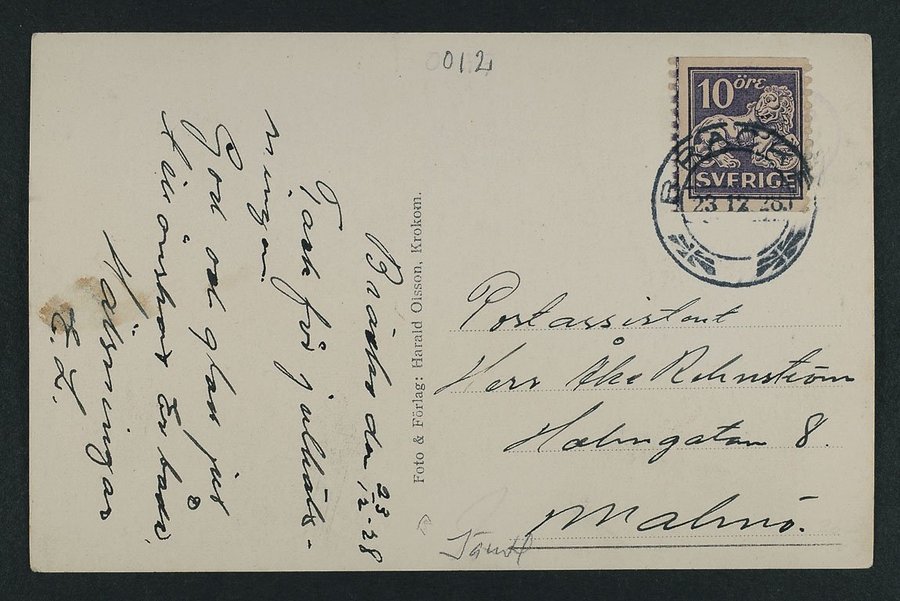 0012
10 öre
SVERIGE
BRÄCKE
23 12 28
Bräcke den 23/12-28
Tack för julhäls-
ningen
God Jul
tillönskas Er båda
Hälsningar
Postassistent
Herr Åke Rehnström
Holmgatan 8.
Malmö.
Foto & Förlag: Harald Olsson, Krokom.
Jämtl